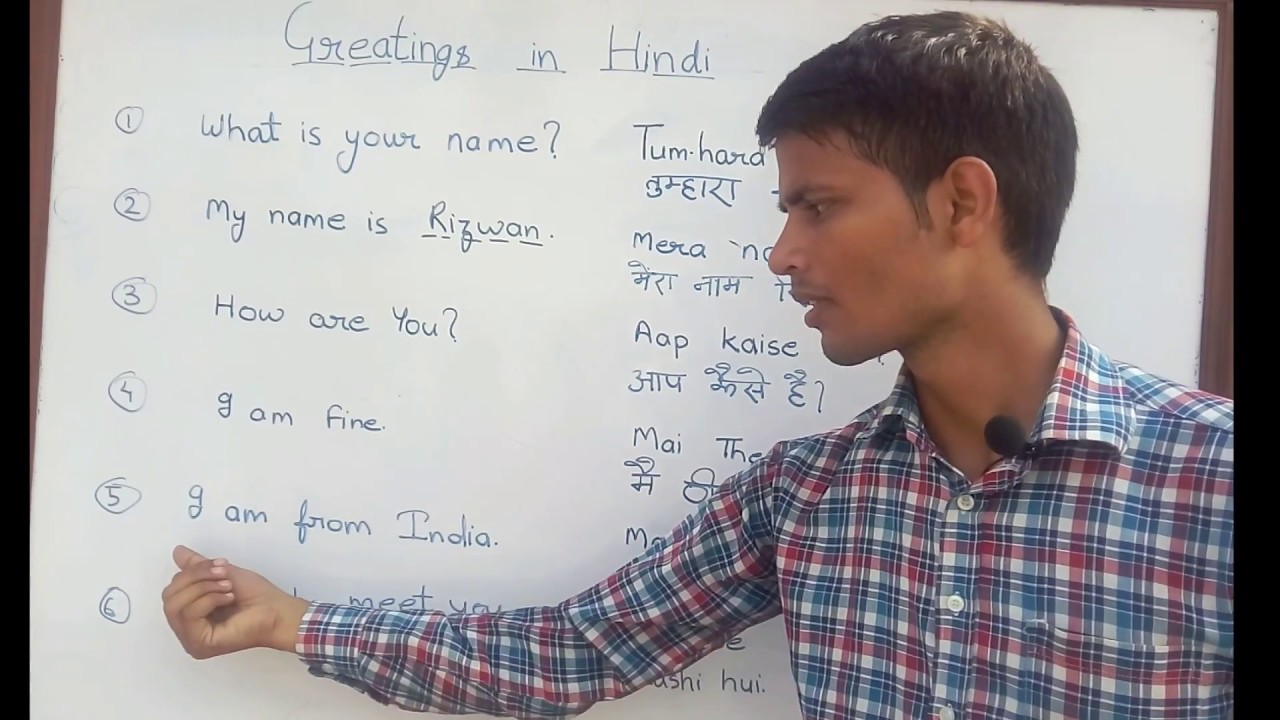 Greatings in Hindi
① What is your name?
Tum-hara
तुम्हारा
② My name is Rizwan.
Mera
मेरा नाम
③ How are You?
Aap kaise ?
आप कैसे है?
④ I am fine.
Mai
मै
⑤ I am from India.
⑥ meet you
hui.